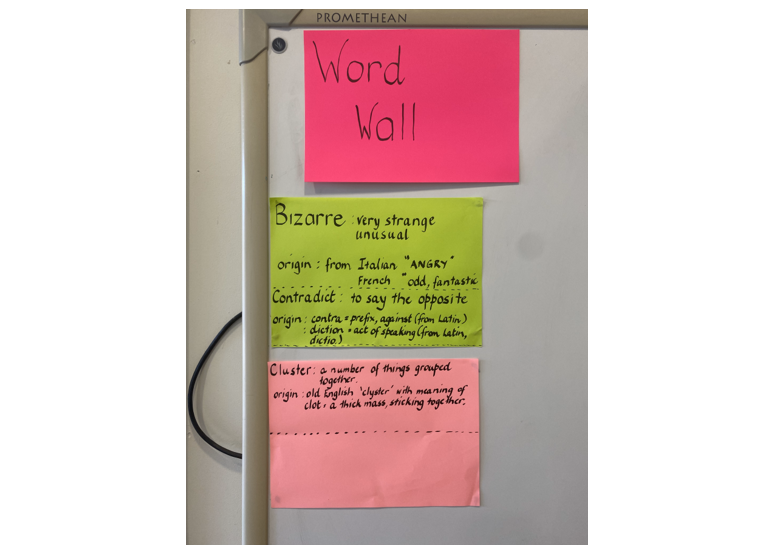 PROMETHEAN
Word
Wall
Bizarre : very strange
unusual
origin : from Italian "ANGRY"
French "odd, fantastic
Contradict : to say the opposite
origin : contra = prefix, against (from Latin)
: diction = act of speaking (from Latin,
dictio)
Cluster : a number of things grouped
together.
origin : old English 'clyster' with meaning of
clot, a thick mass, sticking together.